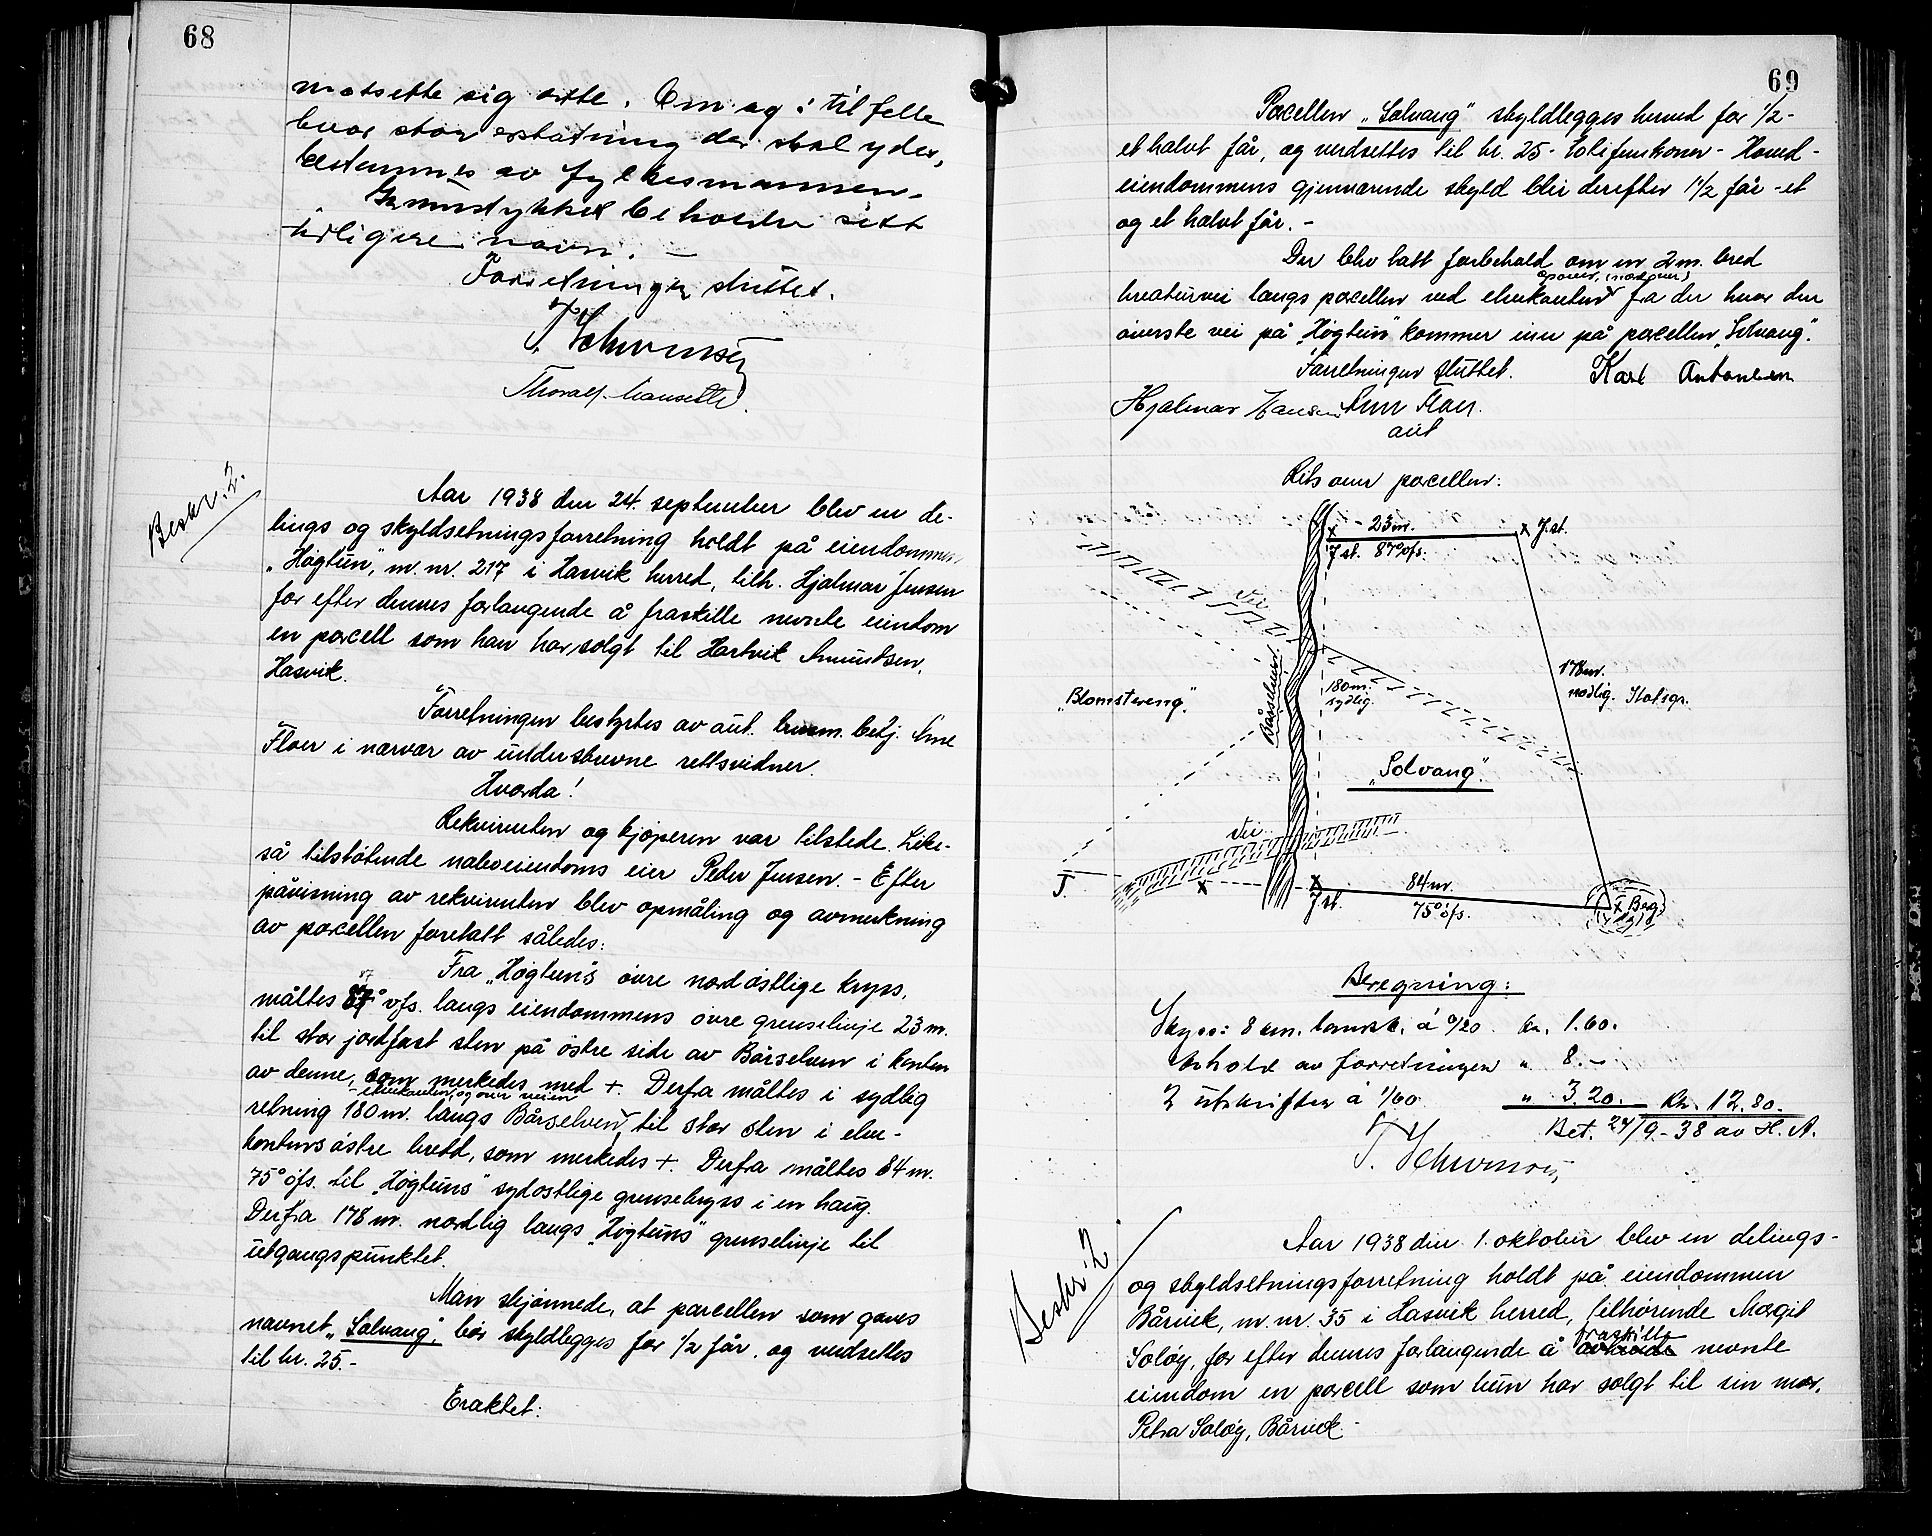 68
motsette sig dette. Om og i tilfelle
hvor stor erstatning der skal ydes,
bestemmes av fylkesmannen.
Grunnstykket beholder sitt
tidligere navn. —
Forretningen sluttet.
Thoralf
Beskr. 2.
Aar 1938 den 24. september blev en de-
lings og skyldsetningsforretning holdt på eiendommen
„Høgtun", m. nr. 217 i Hasvik herred, tilh. Hjalmar Jensen
for efter dennes forlangende å fraskille nevnte eiendom
en parcell som han har solgt til Hartvik Amundsen,
Hasvik.
Forretningen bestyrtes av aut. lensm. betj. Arne
Floer i nærvær av underskrevne rettsvidner.
Hvorda!
Rekvirenten og kjøperen var tilstede. Like-
så tilstøtende naboeiendoms eier Peder Jensen. – Efter
påvisning av rekvirenten blev opmåling og avmerkning
av parcellen foretatt således:
Fra „Høgtun's øvre nordøstlige kryss,
måltes 87° vfs. langs eiendommens øvre grenselinje 23 m.
til stor jordfast sten på østre side av Bårselven i kanten
av denne, som merkedes med +. Derfra måltes i sydlig
- elvekanten, og over veien
retning 180 m. langs Bårselven, til stor sten i elve-
kantens østre bredd, som merkedes +. Derfra måltes 84 m.
75° öfs. til „Høgtuns" sydostlige grensekryss i en haug.
Derfra 178 m. nordlig langs „Høgtuns" grenselinje til
utgangspunktet.
Man skjønnede, at parcellen som gaves
navnet „Solvang", bör skyldlegges for 1/2 får, og verdsettes
til kr. 25.-
Eraktet:
69
Parcellen „Solvang" skyldlegges herved for 1/2-
et halvt får, og verdsettes til kr. 25- tolifemkroner - Hoved-
eiendommens gjenværende skyld blir derefter 1 1/2 får - et
og et halvt får. -
Der blev tatt forbehold om en 2 m. bred
opover, (nordover)
kreaturvei langs parcellen ved elvekanten fra der hvor den
överste vei på „Høgtun" kommer inn på parcellen „Solvang".
Forretningen sluttet. Karl Antonsen
Hjalmar Hansen Arne Floer.
aut
Rits over parcellen:
- 23 m.
x J. st.
J. st. 87° öfs.
Vei
Bårselven
180 m.
sydlig.
178 m.
nordlig. Statsgr.
„Blomstereng".
„Solvang".
Vei
J.
x
x
J. st.
84 m.
75° öfs.
x Berg
Beregning:
Skyss: 8 km. landsk. á 0/20. kr. 1.60.
Avhold av forretningen " 8. -
2 utskrifter á 1/60 " 3.20. Kr. 12.80.
Bet. 24/9-38 av H. A.
Beskr. 2
Aar 1938 den 1. oktober blev en delings-
og skyldsetningsforretning holdt på eiendommen
Bårvik, m. nr. 35 i Hasvik herred, tilhørende Magit
Soløy, for efter dennes forlangende å fraskille nevnte
eiendom en parcell som hun har solgt til sin mor,
Petra Soløy, Bårvik.